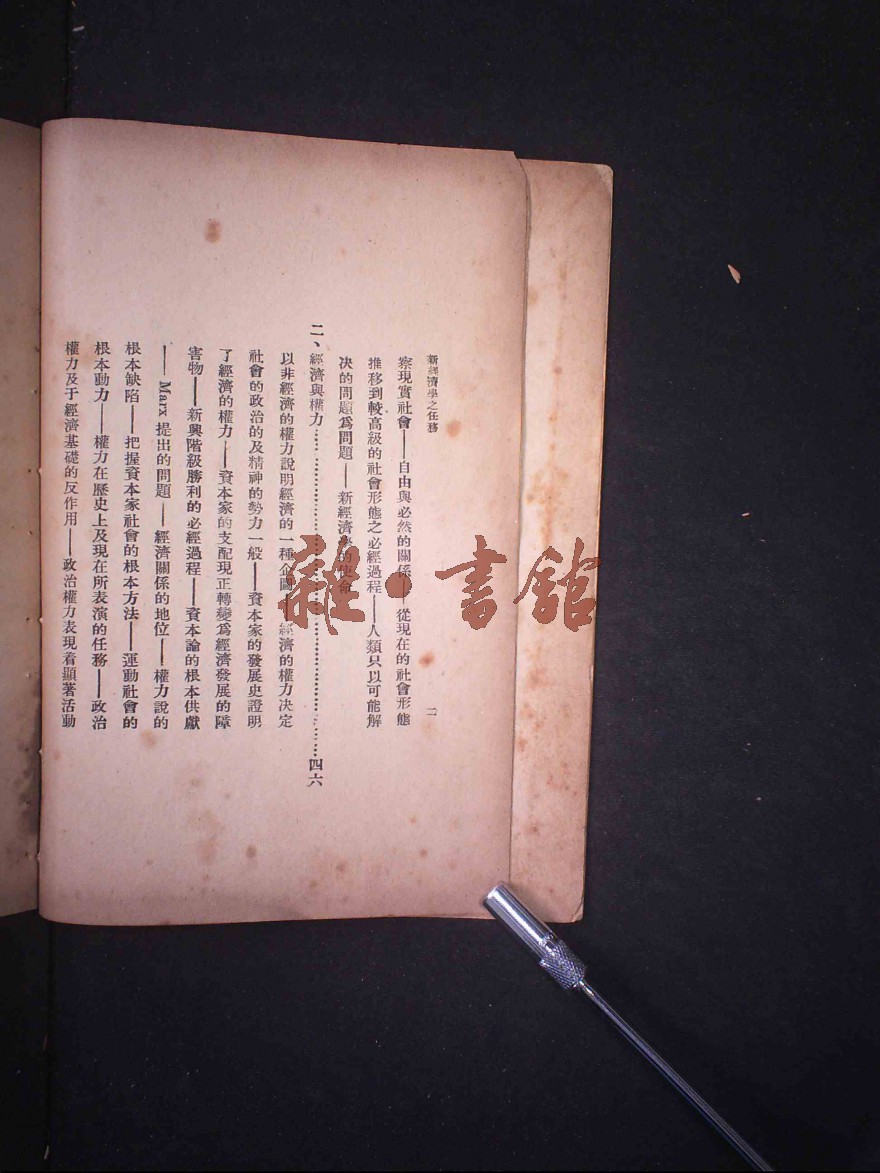 新經濟學之任務
二
察現實社會——自由與必然的關係——從現在的社會形態
推移到較高級的社會形態之必經過程——人類只以可能解
決的問題爲問題——新經濟學的使命
二、經濟與權力……………………………………四六
以非經濟的權力說明經濟的一種企圖——經濟的權力決定
社會的政治的及精神的勢力一般——資本家的發展史證明
了經濟的權力——資本家的支配現正轉變爲經濟發展的障
害物——新興階級勝利的必經過程——資本論的根本供獻
——Marx 提出的問題——經濟關係的地位——權力說的
根本缺陷——把握資本家社會的根本方法——運動社會的
根本動力——權力在歷史上及現在所表演的任務——政治
權力及于經濟基礎的反作用——政治權力表現着顯著活動
雜·書館